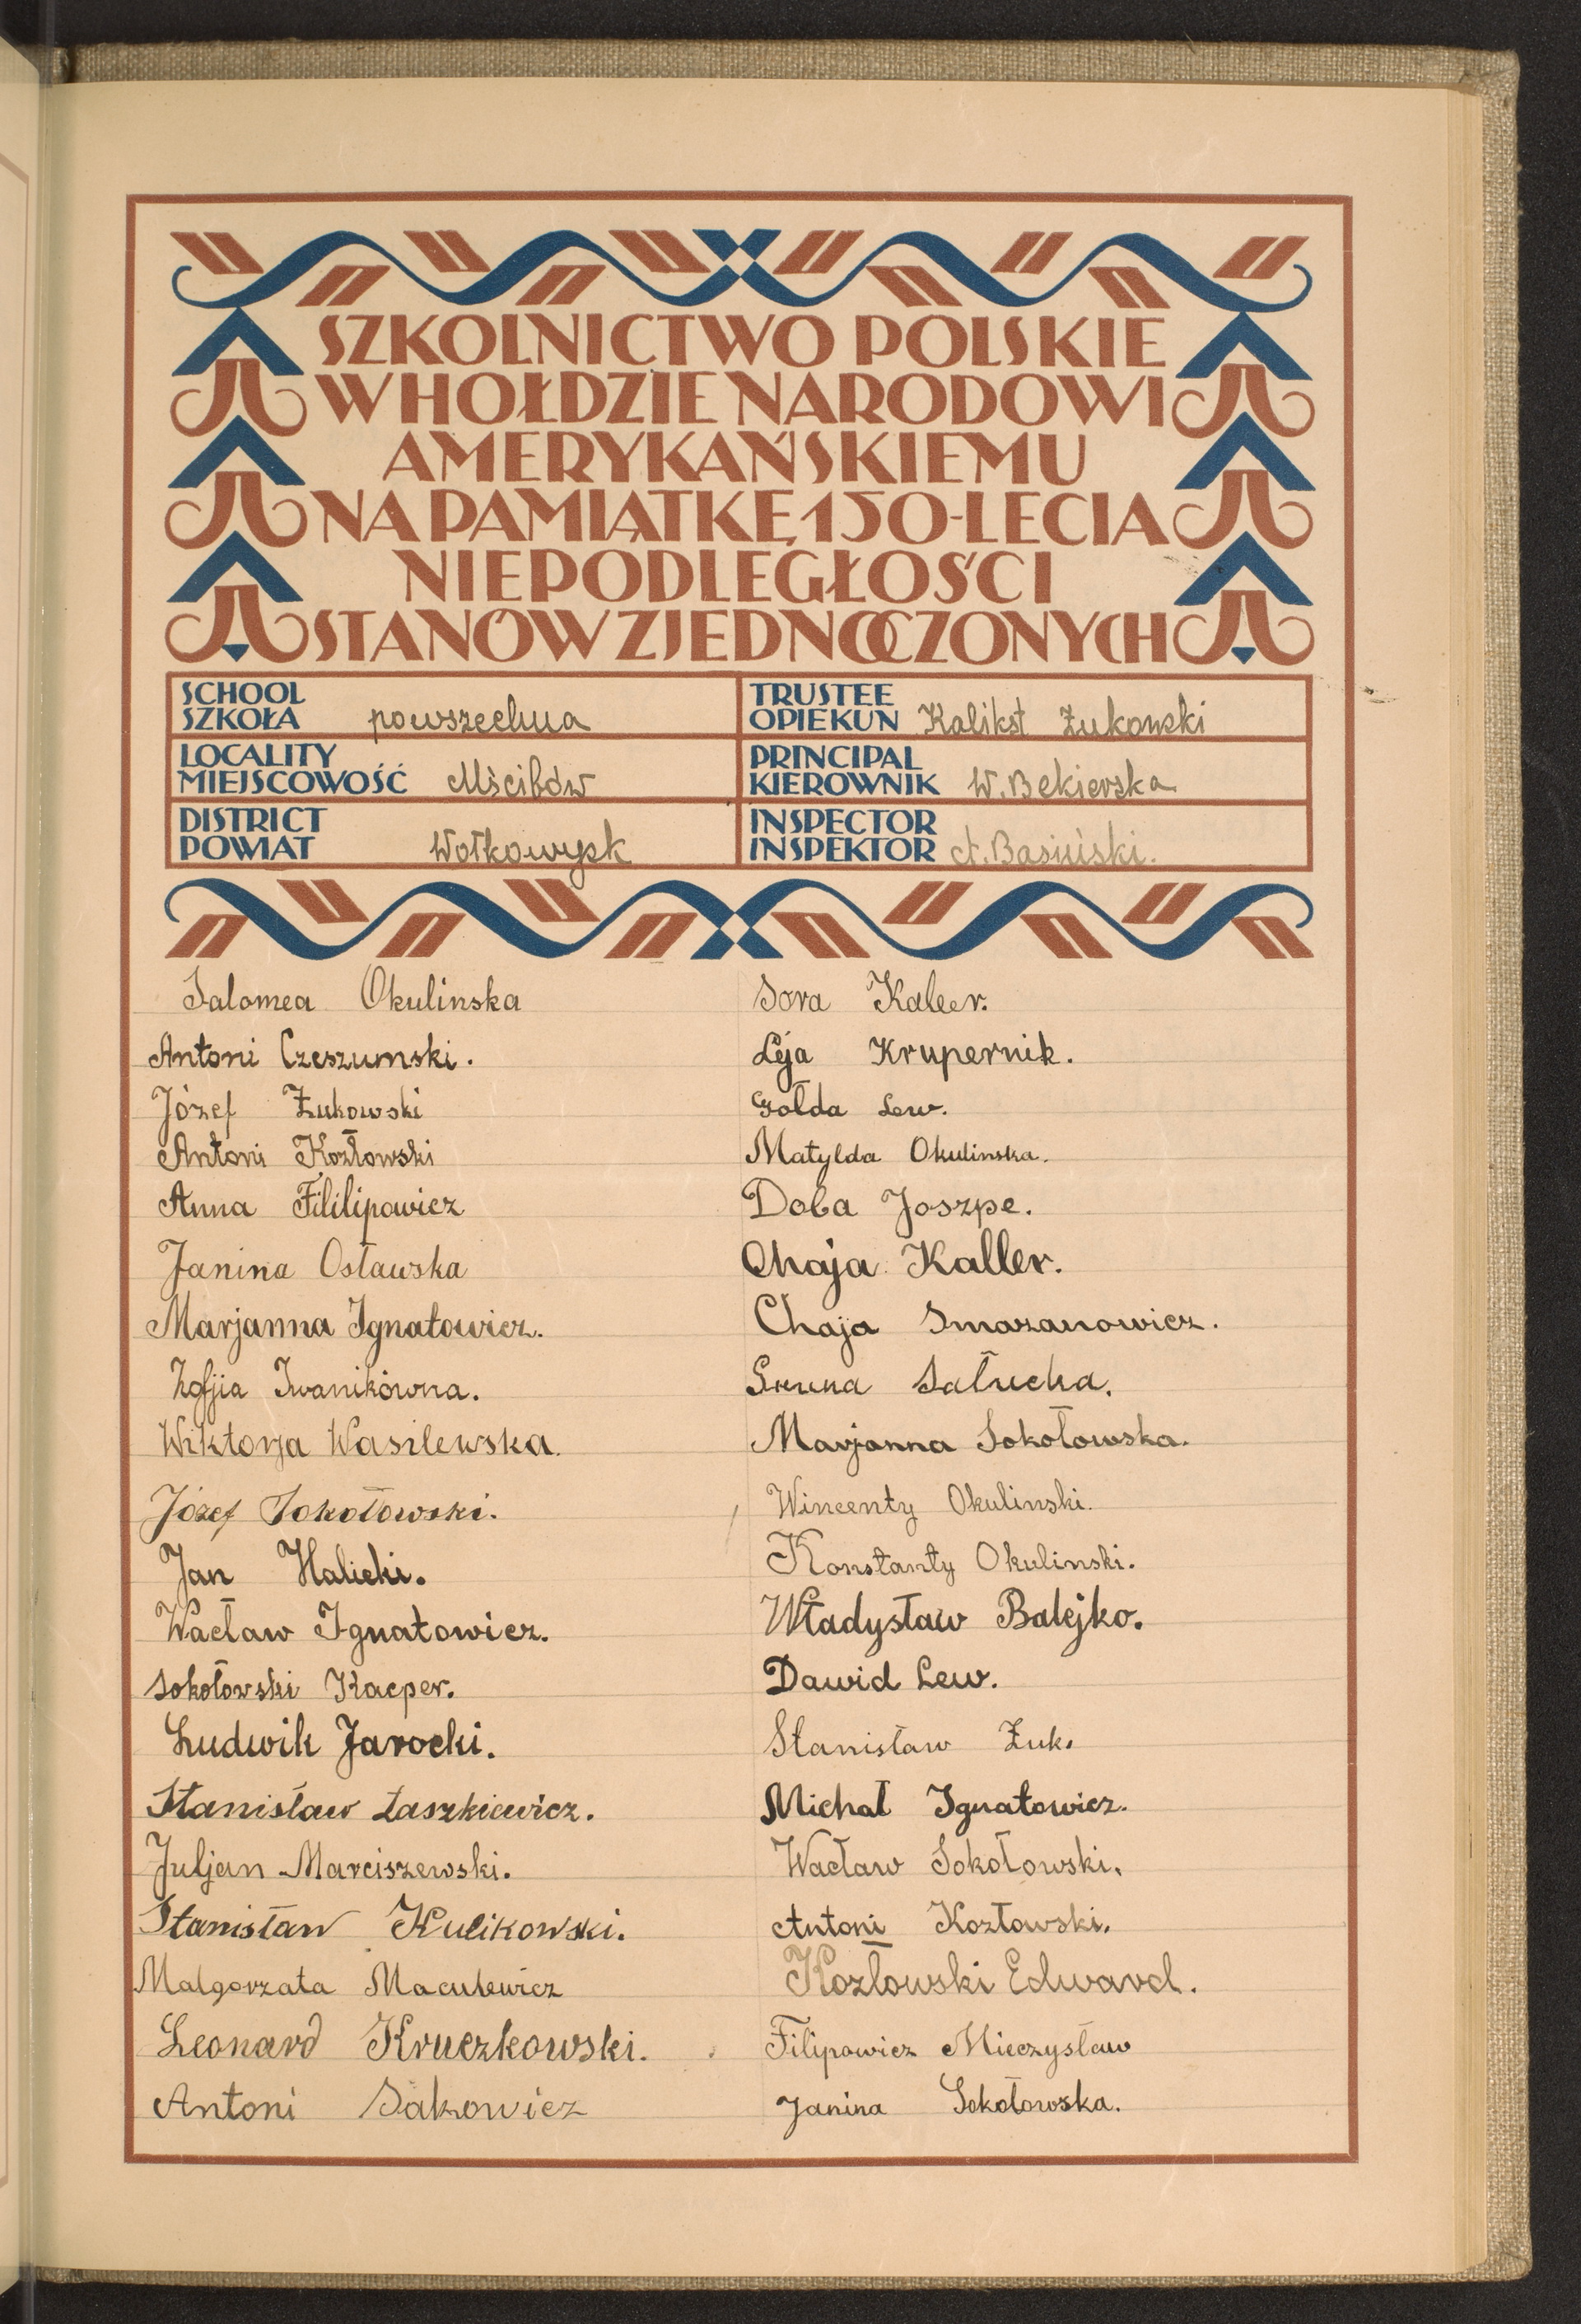 SZKOLNICTWO POLSKIE
W HOŁDZIE NARODOWI
AMERYKAŃSKIEMU
NA PAMIĄTKĘ 150-LECIA
NIEPODLEGŁOŚCI
STANÓW ZJEDNOCZONYCH
SCHOOL
SZKOŁA powszechna
TRUSTEE
OPIEKUN Kalikst Żukowski
LOCALITY
MIEJSCOWOŚĆ Mścibów
PRINCIPAL
KIEROWNIK W. Bekierska
DISTRICT
POWIAT Wołkowysk
INSPECTOR
INSPEKTOR A. Basiński.
Salomea Okulinska
Antoni Czeszumski.
Józef Żukowski
Antoni Kozłowski
Anna Fililipowicz
Janina Osławska
Marjanna Ignatowicz.
Zofjia Iwanikówna.
Wiktorja Wasilewska.
Józef Sokołowski.
Jan Halicki.
Wacław Ignatowicz.
Sokołowski Kacper.
Ludwik Jarocki.
Stanisław Łaszkiewicz.
Juljan Marciszewski.
Stanisław Kulikowski.
Malgorzata Maculewicz
Leonard Kruczkowski.
Antoni Sakowicz
Sora Kaleer.
Leja Krupernik.
Gołda Lew.
Matylda Okulinska.
Doba Joszpe.
Chaja Kaller.
Chaja Smazanowicz.
Sałucha.
Marjanna Sokołowska.
Wincenty Okulinski.
Konstanty Okulinski.
Władysław Balejko.
Dawid Lew.
Stanisław Żuk.
Michał Ignatowicz.
Wacław Sokołowski.
Antoni Kozłowski.
Kozłowski Edward.
Filipowicz Mieczysław
Janina Sokołowska.